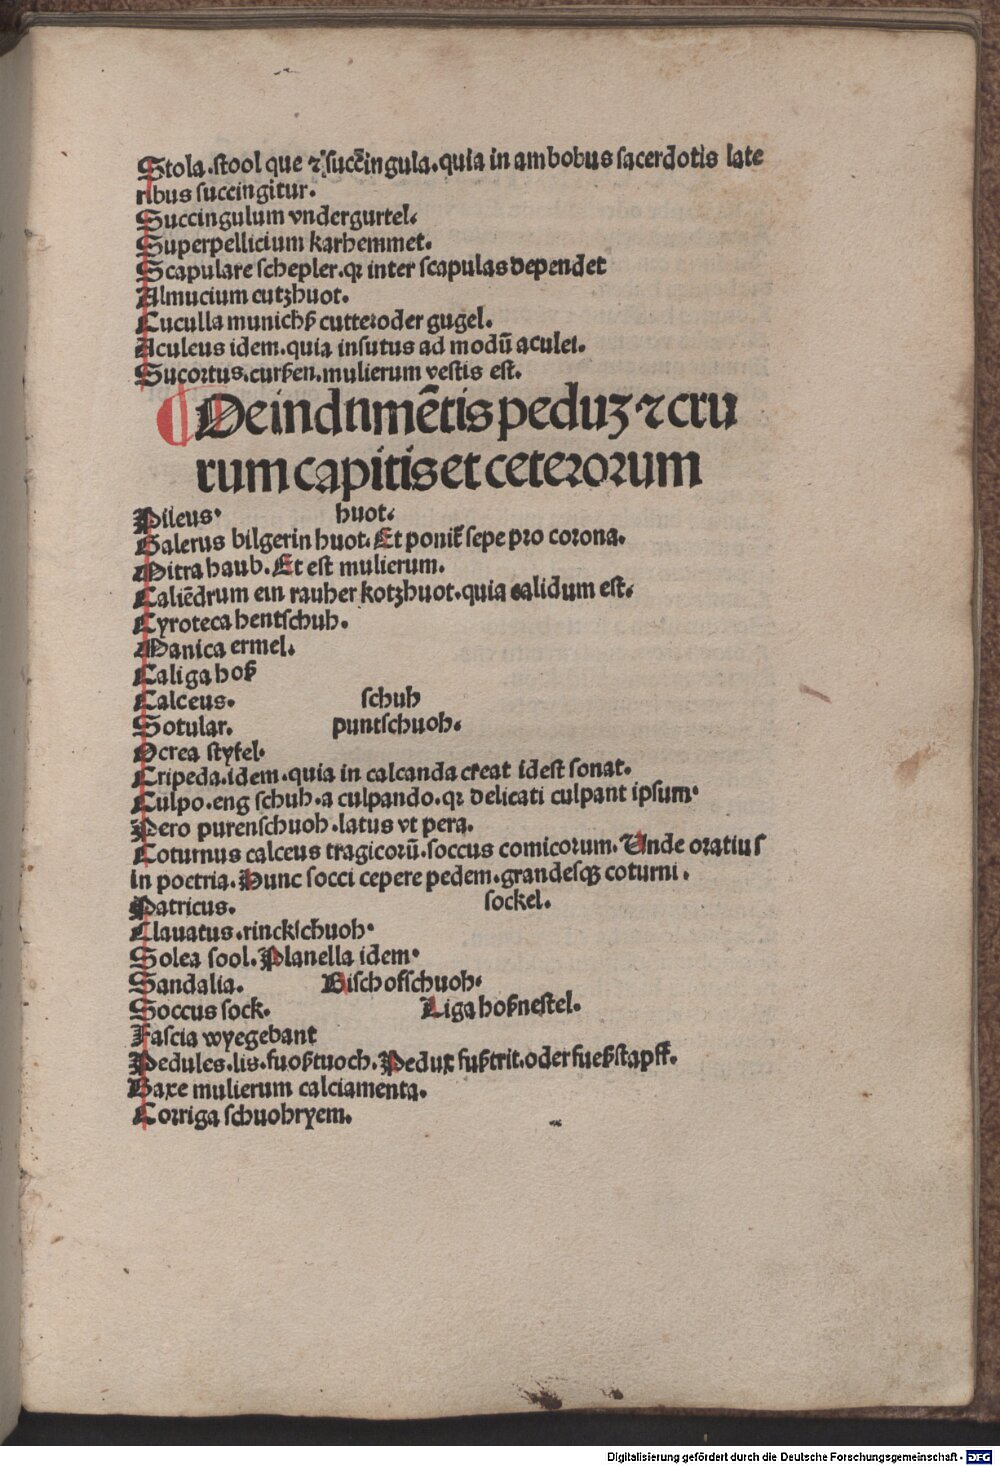 Stola.stool que ⁊ succ̄ingula.quia in ambobus sacerdotis late
ribus succingitur.
Succingulum vndergurtel.
Superpellicium karhemmet.
Scapulare schepler.qꝛ inter scapulas dependet
Almucium cutzhuot.
Cuculla munichß cutte oder gugel.
Aculeus idem.quia insutus ad modū aculei.
Sucortus.curßen.mulierum vestis est.
De indumētis peduꝫ ⁊ cru
rum capitis et ceterorum
Pileus. huot.
Galerus bilgerin huot. Et ponit̄ sepe pro corona.
Mitra haub. Et est mulierum.
Caliēdrum ein rauher kotzhuot.quia calidum est.
Cyroteca hentschuh.
Manica ermel.
Caliga hoß
Calceus. schuh
Sotular. puntschuoh.
Ocrea styfel.
Cripeda.idem.quia in calcanda creat idest sonat.
Culpo.eng schuh.a culpando.qꝛ delicati culpant ipsum.
Pero purenschuoh.latus vt pera.
Coturnus calceus tragicorū.soccus comicorum. Unde oratius
in poetria. Hunc socci cepere pedem.grandesqꝫ coturni.
Patricus. sockel.
Clauatus.rinckschuoh.
Solea sool. Planella idem.
Sandalia. Bischofschuoh.
Soccus sock. Liga hoßnestel.
Fascia wyegebant
Pedules.lis.fuoßtuoch. Pedux fußtrit.oder fueßstapff.
Baxe mulierum calciamenta.
Corriga schuohryem.
Digitalisierung gefördert durch die Deutsche Forschungsgemeinschaft - DFG